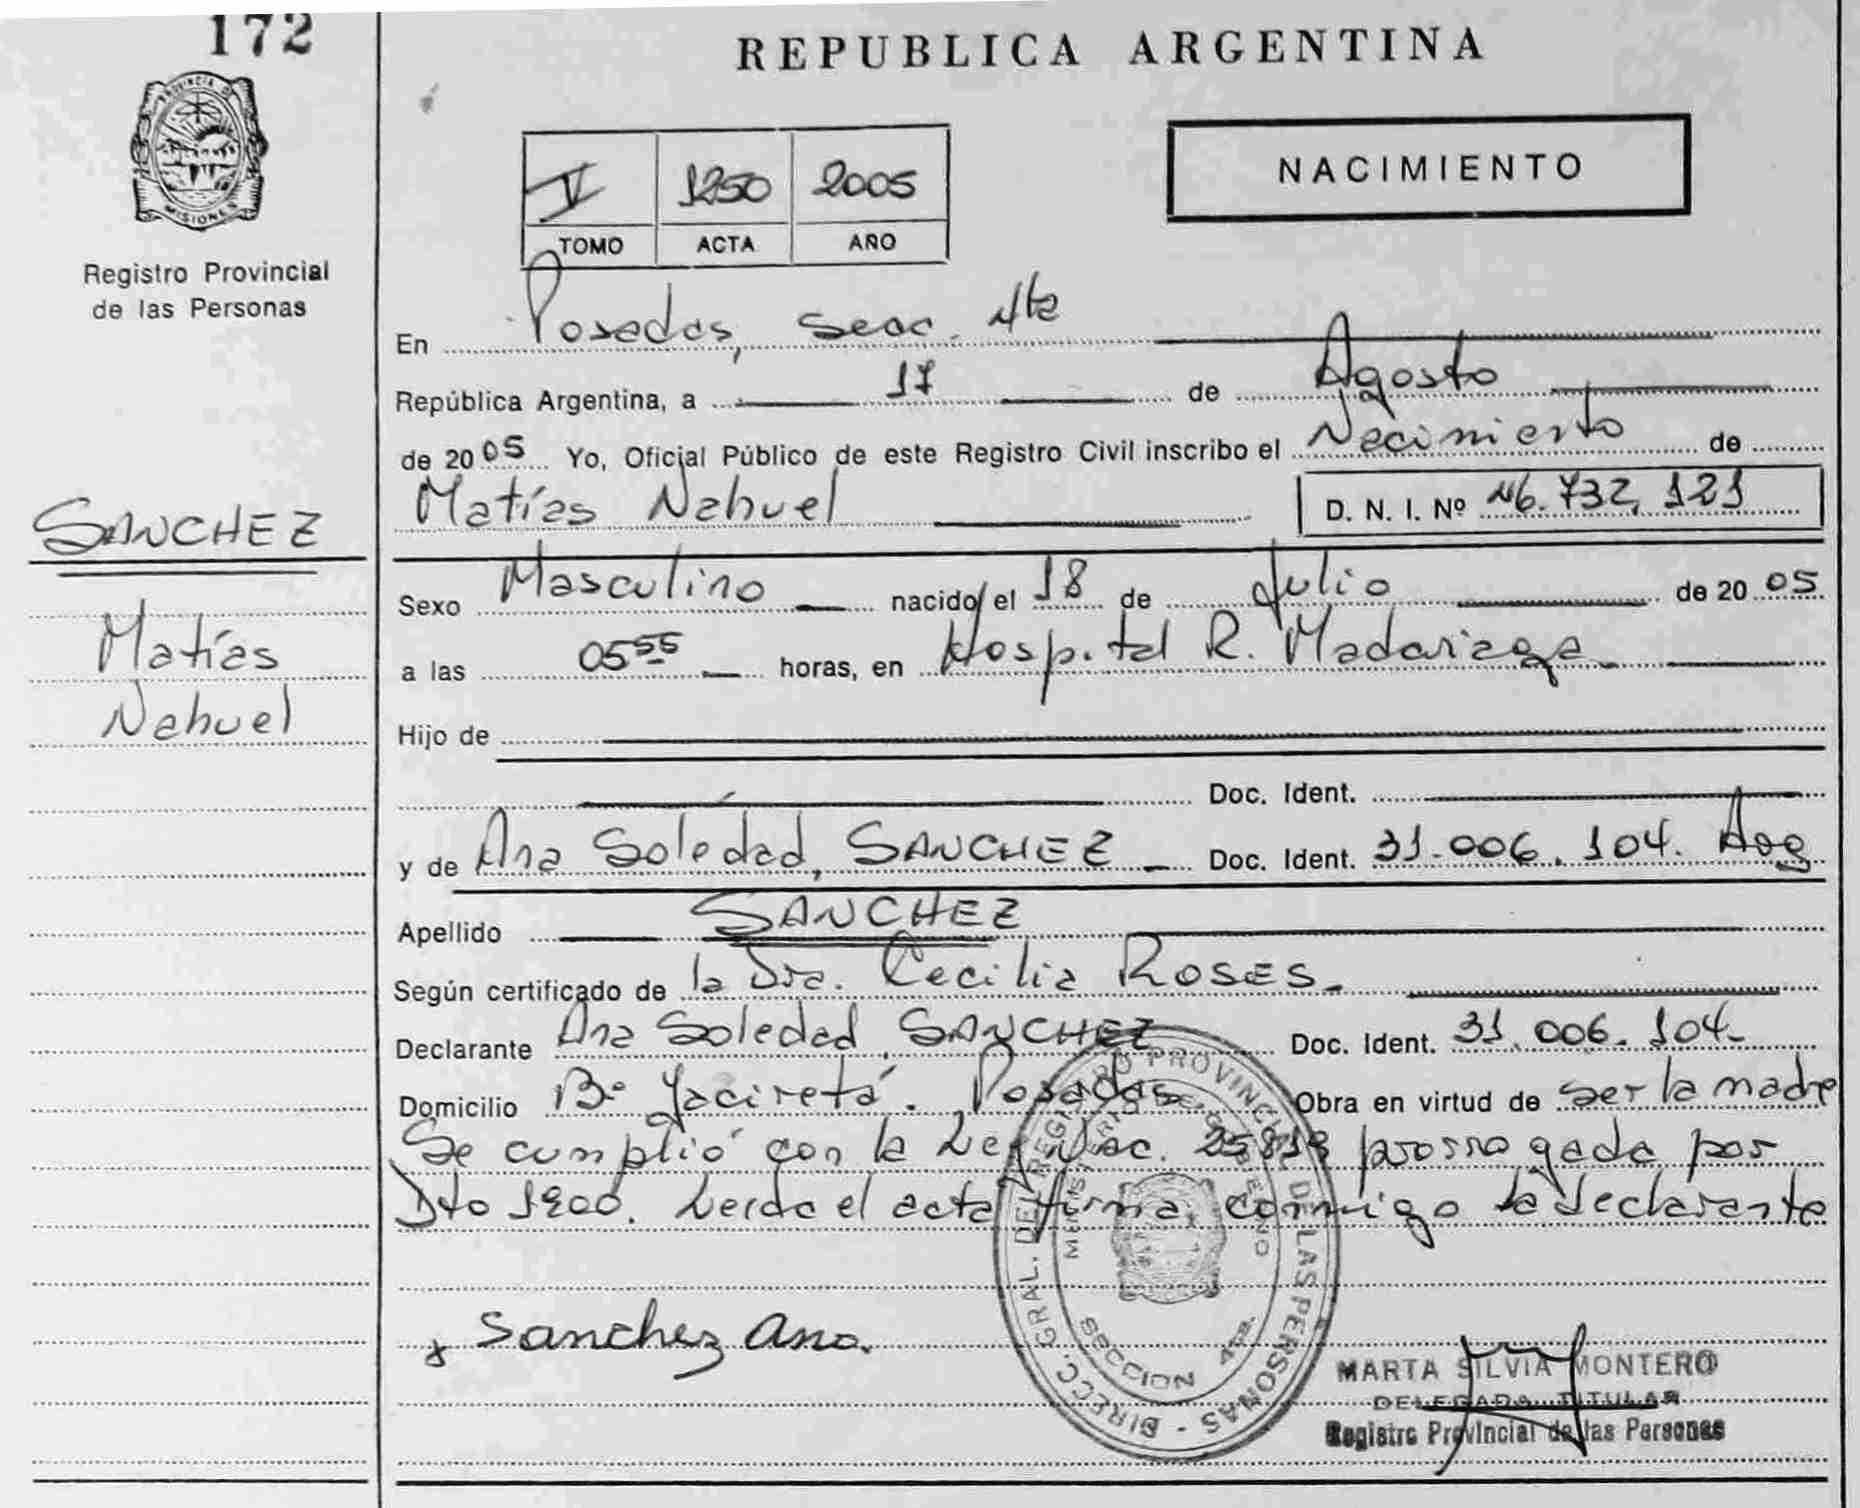 172
REPUBLICA ARGENTINA
PROVINCIA DE
MISIONES
Registro Provincial
de las Personas
V 1250 2005
TOMO ACTA AÑO
NACIMIENTO
En Posadas, Secc. 4ta
República Argentina, a 17 de Agosto
de 2005 Yo, Oficial Público de este Registro Civil inscribo el Nacimiento de
Matías Nahuel D. N. I. Nº 46.732,121
SANCHEZ
Matías
Nahuel
Sexo Masculino nacido el 18 de Julio de 2005
a las 05 55 horas, en Hospital R. Madariaga
Hijo de
Doc. Ident.
y de Ana Soledad, SANCHEZ Doc. Ident. 31.006.104. Arg
Apellido SANCHEZ
Según certificado de la Dra. Cecilia ROSES.
Declarante Ana Soledad, SANCHEZ Doc. Ident. 31.006.104-
Domicilio Bº Yaciretá. Posadas. Obra en virtud de ser la madre
Se cumplió con la Ley Nac. 25819 prorrogada por
Dto 1900. Leida el acta firma conmigo la declarante
x Sanchez Ana.
DIRECC. GRAL. DEL REGISTRO PROVINCIAL DE LAS PERSONAS
MINISTERIO DE GOBIERNO
SECCION 4ta.
MARTA SILVIA MONTERO
DELEGADA TITULAR
Registro Provincial de las Personas